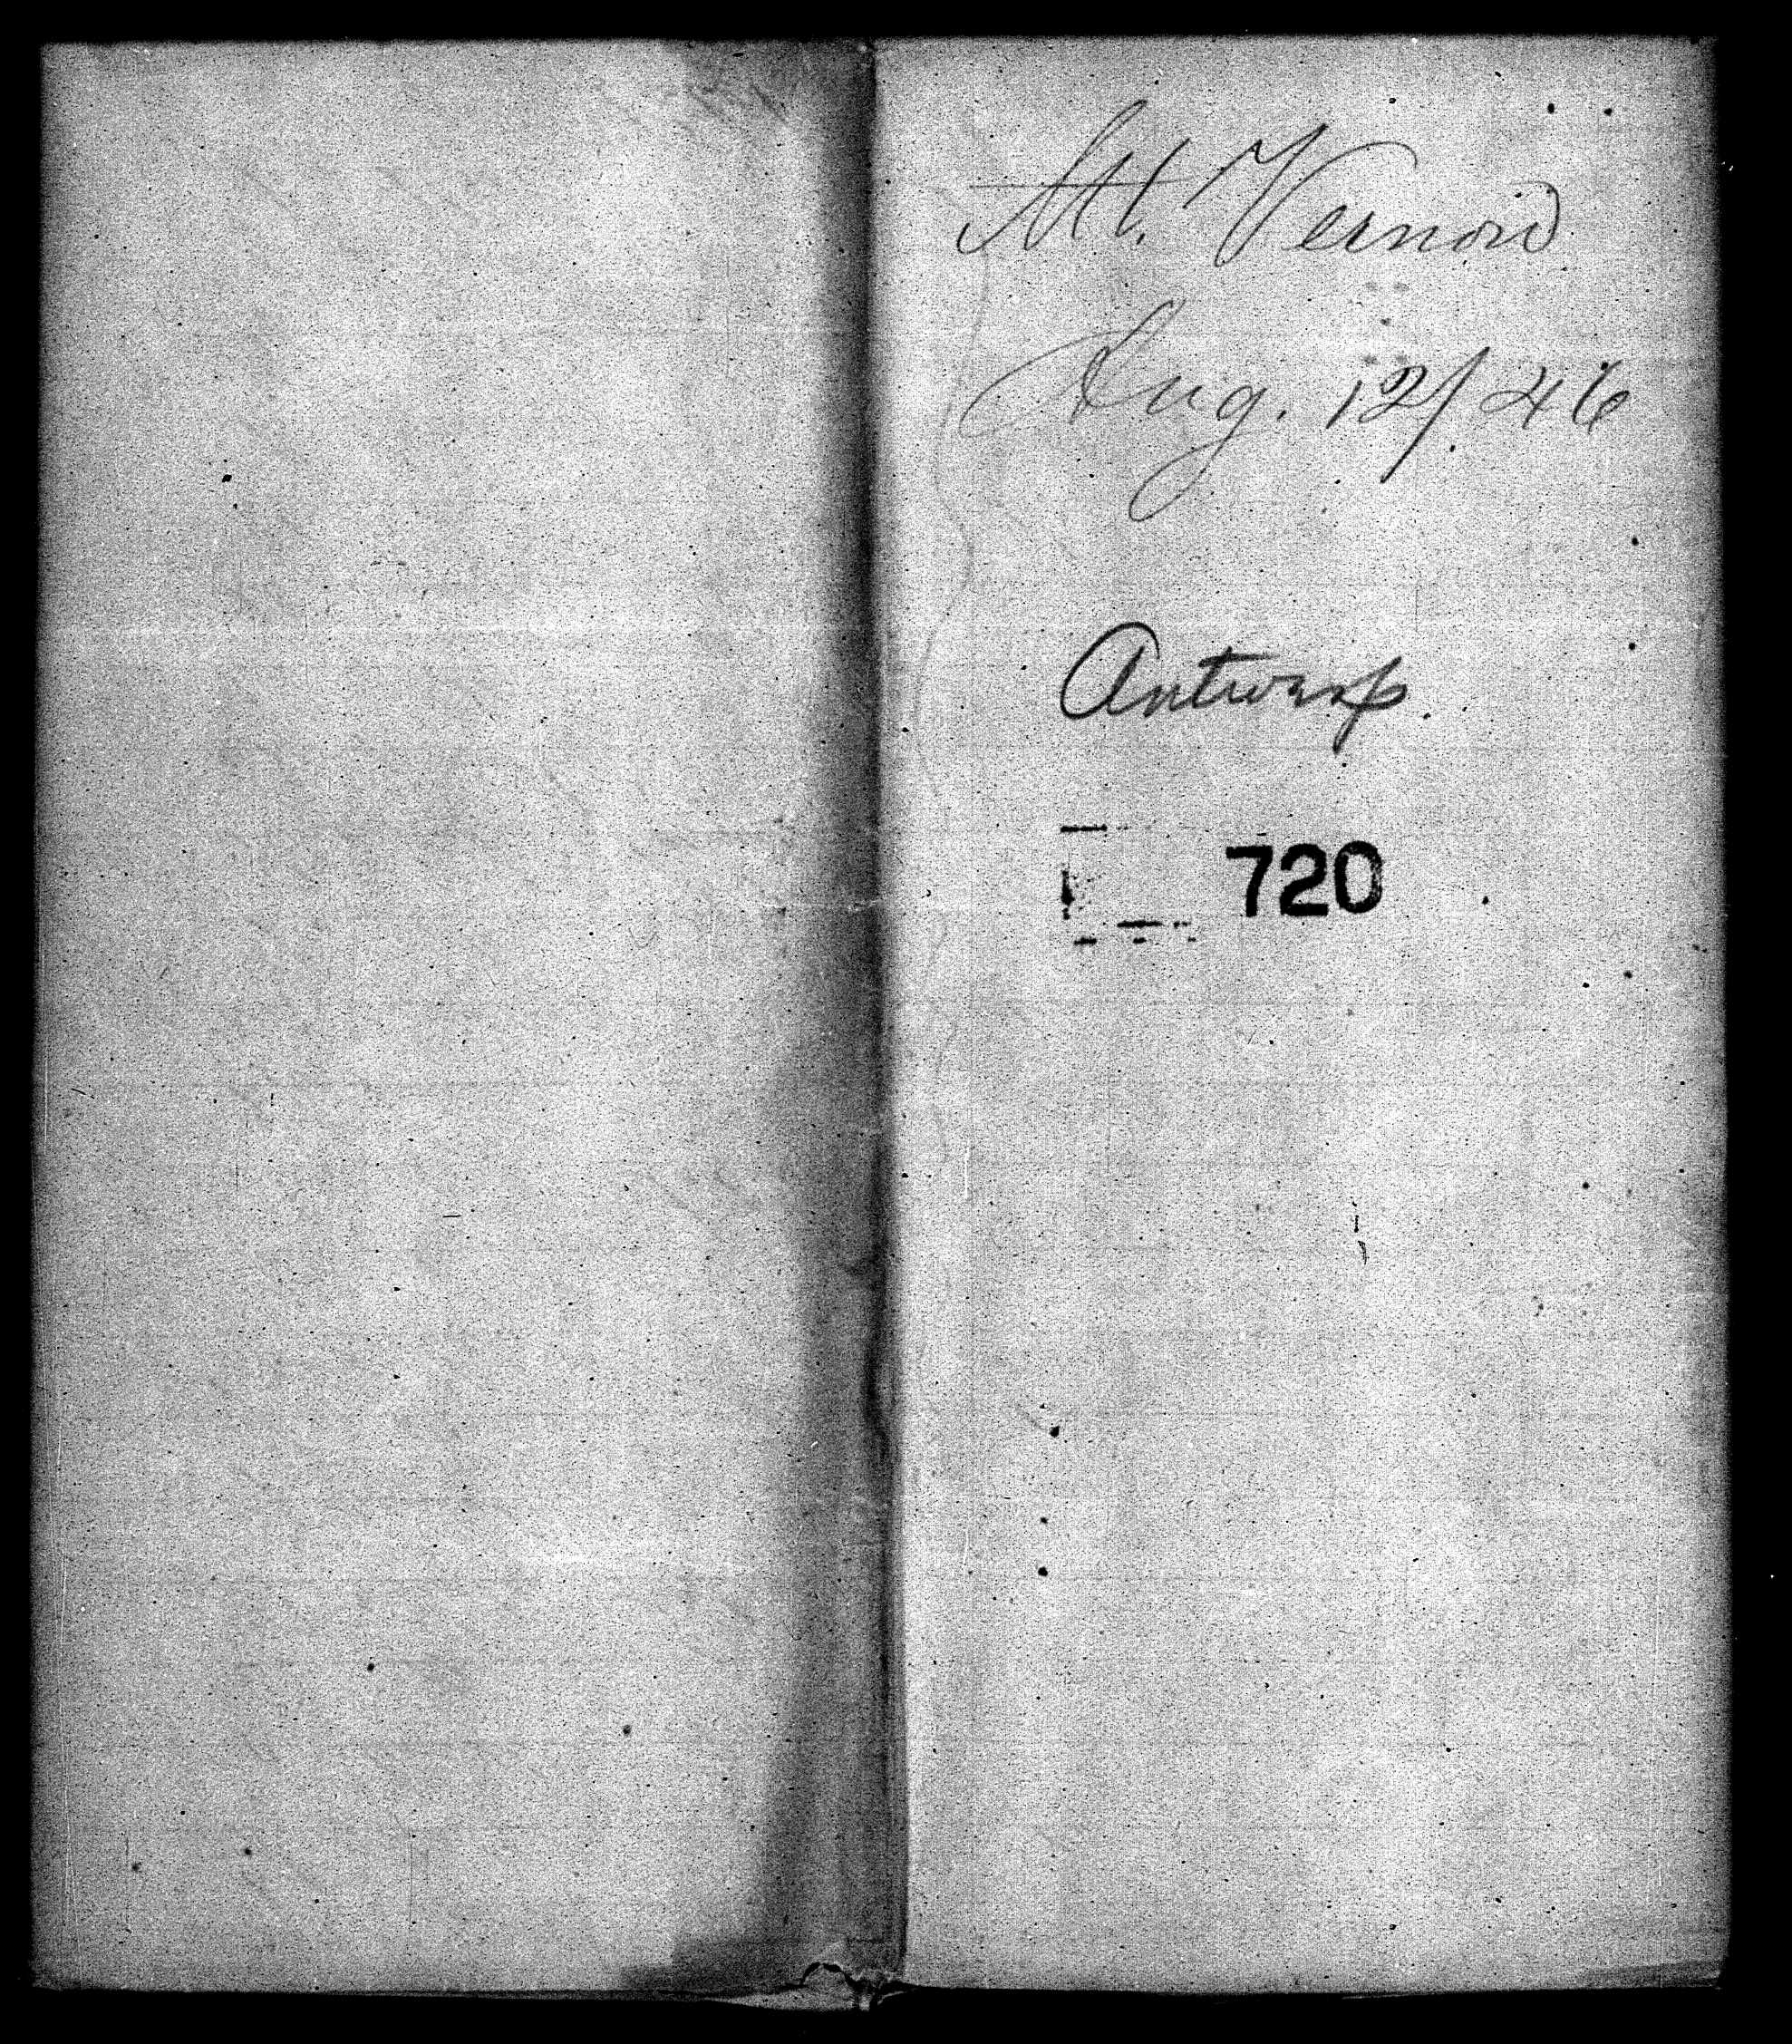 Mt. Vernon
Aug. 12/46
Antwerp
720